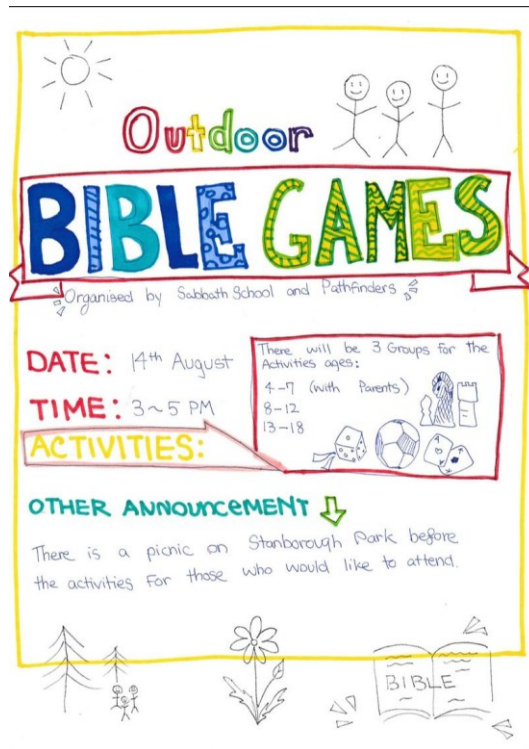 Outdoor
BIBLE GAMES
Organised by Sabbath School and Pathfinders
DATE: 14th August
TIME: 3~5 PM
ACTIVITIES:
There will be 3 Groups for the
Activities ages:
4-7 (with Parents)
8-12
13-18
OTHER ANNOUNCEMENT
There is a picnic on Stanborough Park before
the activities For those who would like to attend.
BIBLE